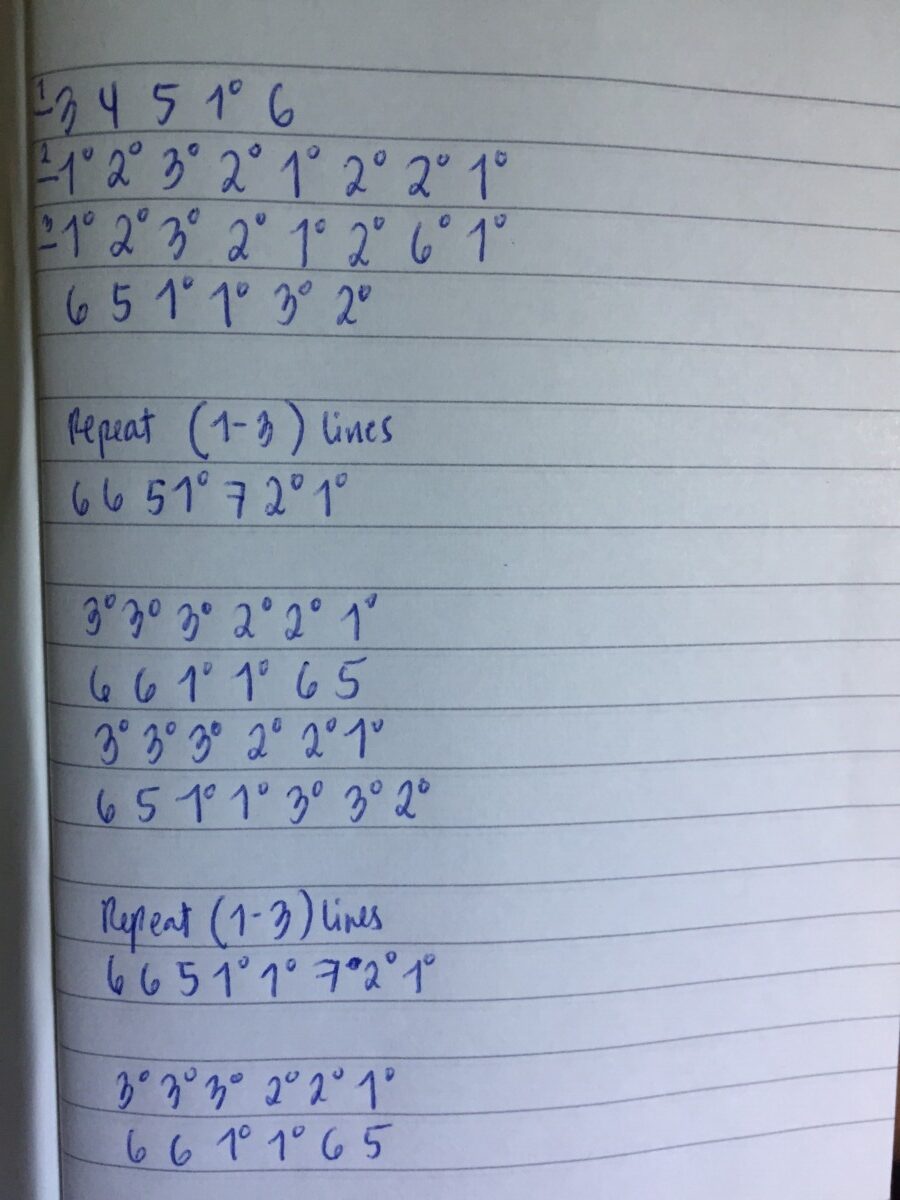 1-3 4 5 1° 6
2-1° 2° 3° 2° 1° 2° 2° 1°
3-1° 2° 3° 2° 1° 2° 6° 1°
6 5 1° 1° 3° 2°
Repeat (1-3) lines
6 6 5 1° 7 2° 1°
3° 3° 3° 2° 2° 1°
6 6 1° 1° 6 5
3° 3° 3° 2° 2° 1°
6 5 1° 1° 3° 3° 2°
Repeat (1-3) lines
6 6 5 1° 1° 7° 2° 1°
3° 3° 3° 2° 2° 1°
6 6 1° 1° 6 5